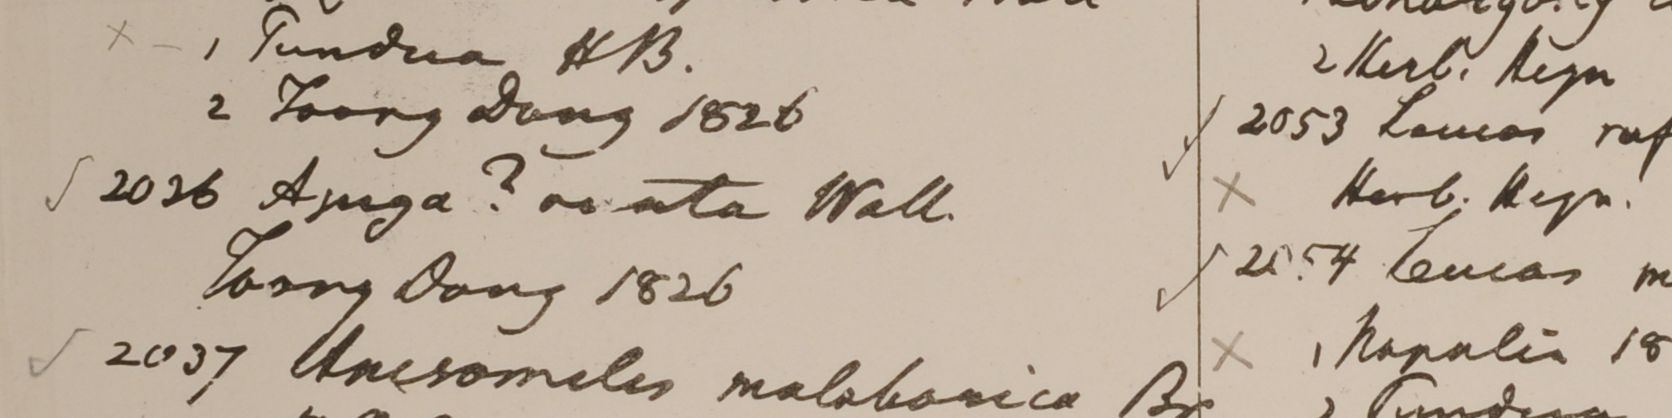 1 Tundua HB.
2 Toong Dong 1826
2036 Ajuga ? ovata Wall.
Toong Dong 1826
2037 Anisomeles malabarica Br
2 Herb. Heyn
2053 Leucas ruf
Herb. Heyn.
2054 Leucas m
1, Napalia 18
2 Tundua